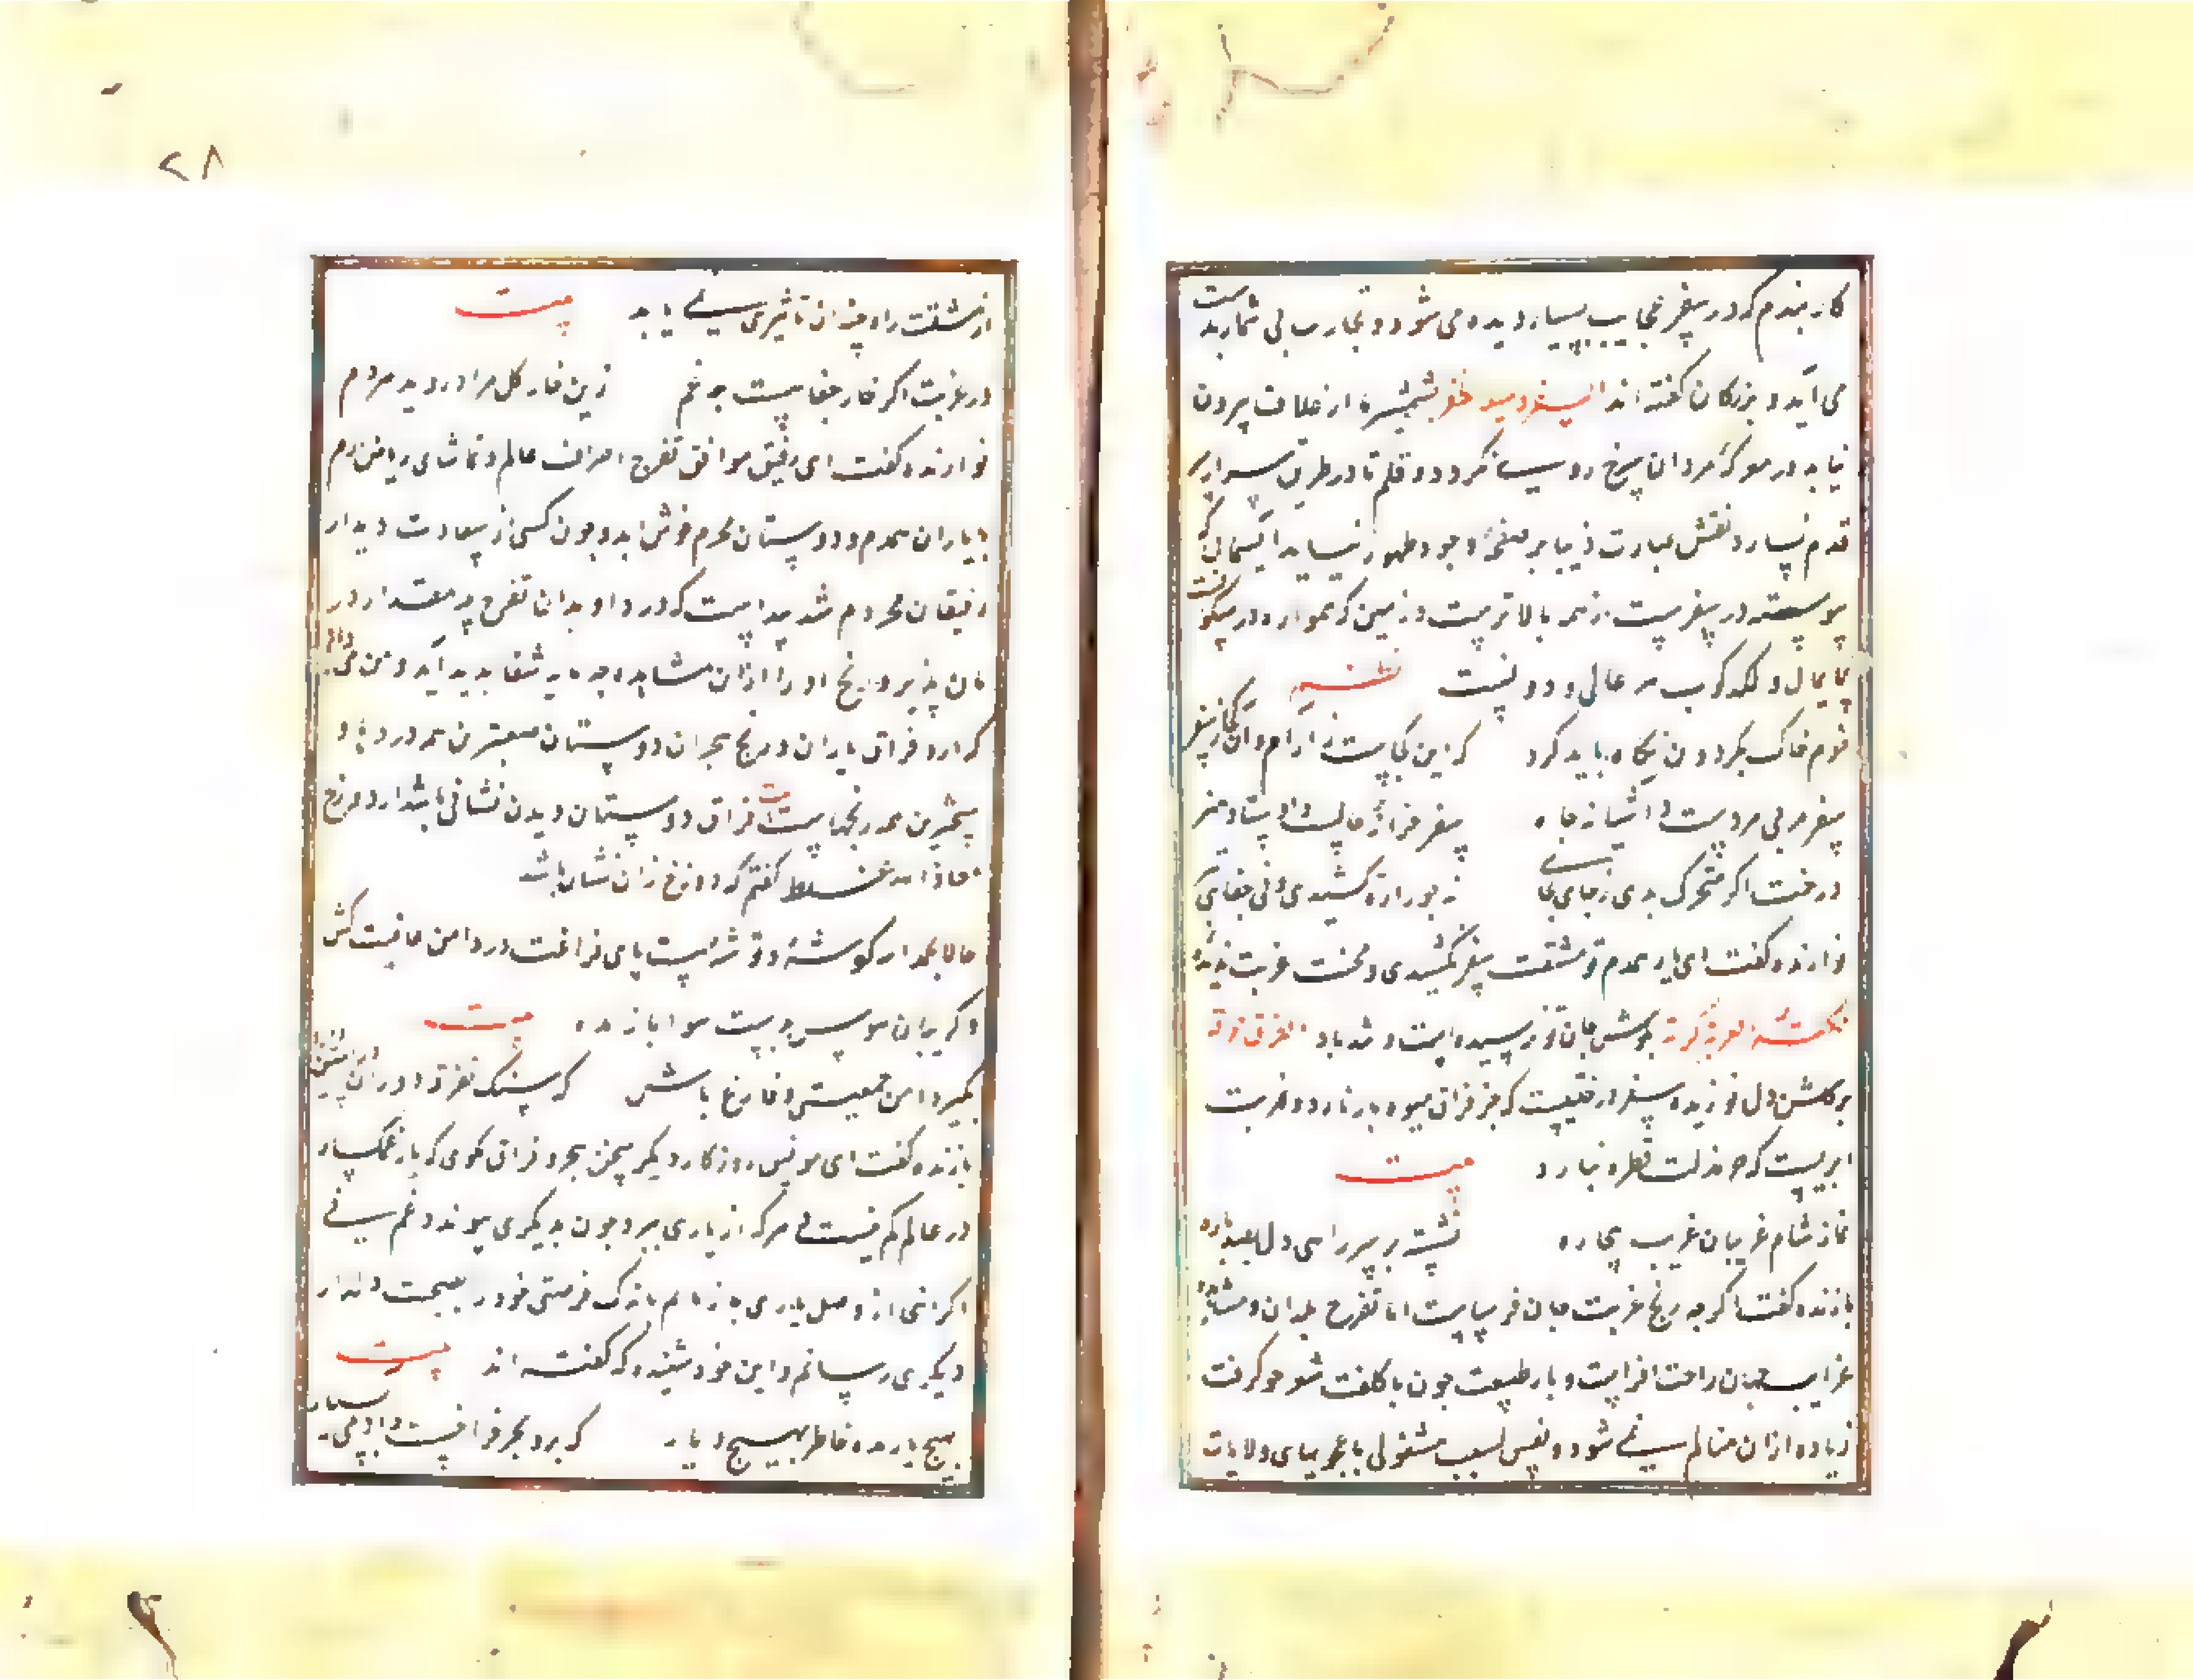 کار بندم که در سفر عجایب بسیار دیده می شود و تجارب بی شمار بدست
می آید و بزرگان گفته اند السفر وسیلة الظفر شمشیر تا از غلاف بیرون
نیاید در معرکهٔ مردان سرخ روی نگردد و قلم تا در طریق سیر از سر
قدم نسازد نقش عبارت زیبا بر صفحهٔ وجود ظهور نیابد آسمان که
پیوسته در سفرست از همه بالاترست و زمین که همواره در سکونست
پایمال و لکدکوب هر عالی و دونست
بجرم خاک و بگردون نگاه باید کرد که این کجاست ز آرام و آن کجا ز سفر
سفر مربی مردست و آشیانهٔ جاه سفر خزانهٔ مالست و اوستاد هنر
درخت اگر متحرک بدی ز جای بجای نه جور اره کشیدی و نی جفای تبر
نوازنده گفت ای یار همدم تو مشقت سفر نکشیدی و محنت غربت ندیدهٔ
نکتهٔ الغربة کربة بگوش جان تو نرسیده است و تندباد الفرقة حرقة
بر گلشن دل تو نوزیده سفر درختیست که جز فراق میوه بار نارد و غربت
ابریست که جز مذلت قطره نبارد بیت
نماز شام غریبان غریب بیچاره نشسته بر سر راهی دل بصد پاره
بازنده گفت اگرچه رنج غربت جان فرساست اما تفرج بلدان و مشاهدهٔ
غرایب جهان راحت افزاست و باز طبیعت چون با کلفت سفر خو گرفت
زیاده از ان متالم نمی شود و نفس بسبب مشغولی باعجوبهای ولایات
۲۸
از مشقت راه چندان تاثیری نمی یابد بیت
در غربت اگر خار جفا هست چه غم زین خار گل مراد روید هردم
نوازنده گفت ای رفیق موافق تفرج اطراف عالم و تماشای ریاض ارم
با یاران همدم و دوستان محرم خوش آید و چون کسی از سعادت دیدار
رفیقان محروم شد پیداست که درد او بدان تفرج چه مقدار در
مان پذیرد و رنج او را از ان مشاهده چه مایه شفا پدید آید و من می دانم
که درد فراق یاران و رنج هجران دوستان صعبترین همه دردها و
سختترین همه رنجهاست بیت فراق دوستان دیدن نشانی باشد از دوزخ
معاذ الله غلط گفتم که دوزخ زان نشان باشد
حالا بحمد الله گوشهٔ و توشهٔ هست پای فراغت در دامن عافیت کش
و گریبان هوس بدست هوا باز مده بیت
بگیر دامن جمعیتی و فارغ باش که سنگ تفرقه دوران در آستین دارد
بازنده گفت ای مونس روزگار دیگر سخن هجر و فراق مگوی که یار غمگسار
در عالم کم نیست هر که از یاری ببرد چون بدیگری پیوندد غم نی
اگر اینجا از وصل یاری باز مانم باندک فرصتی خود را بصحبت دلدار
دیگری رسانم و این خود شنیدهٔ که گفته اند بیت
بهیچ یار مده خاطر و بهیچ دیار که بر و بحر فراخست و آدمی بسیار